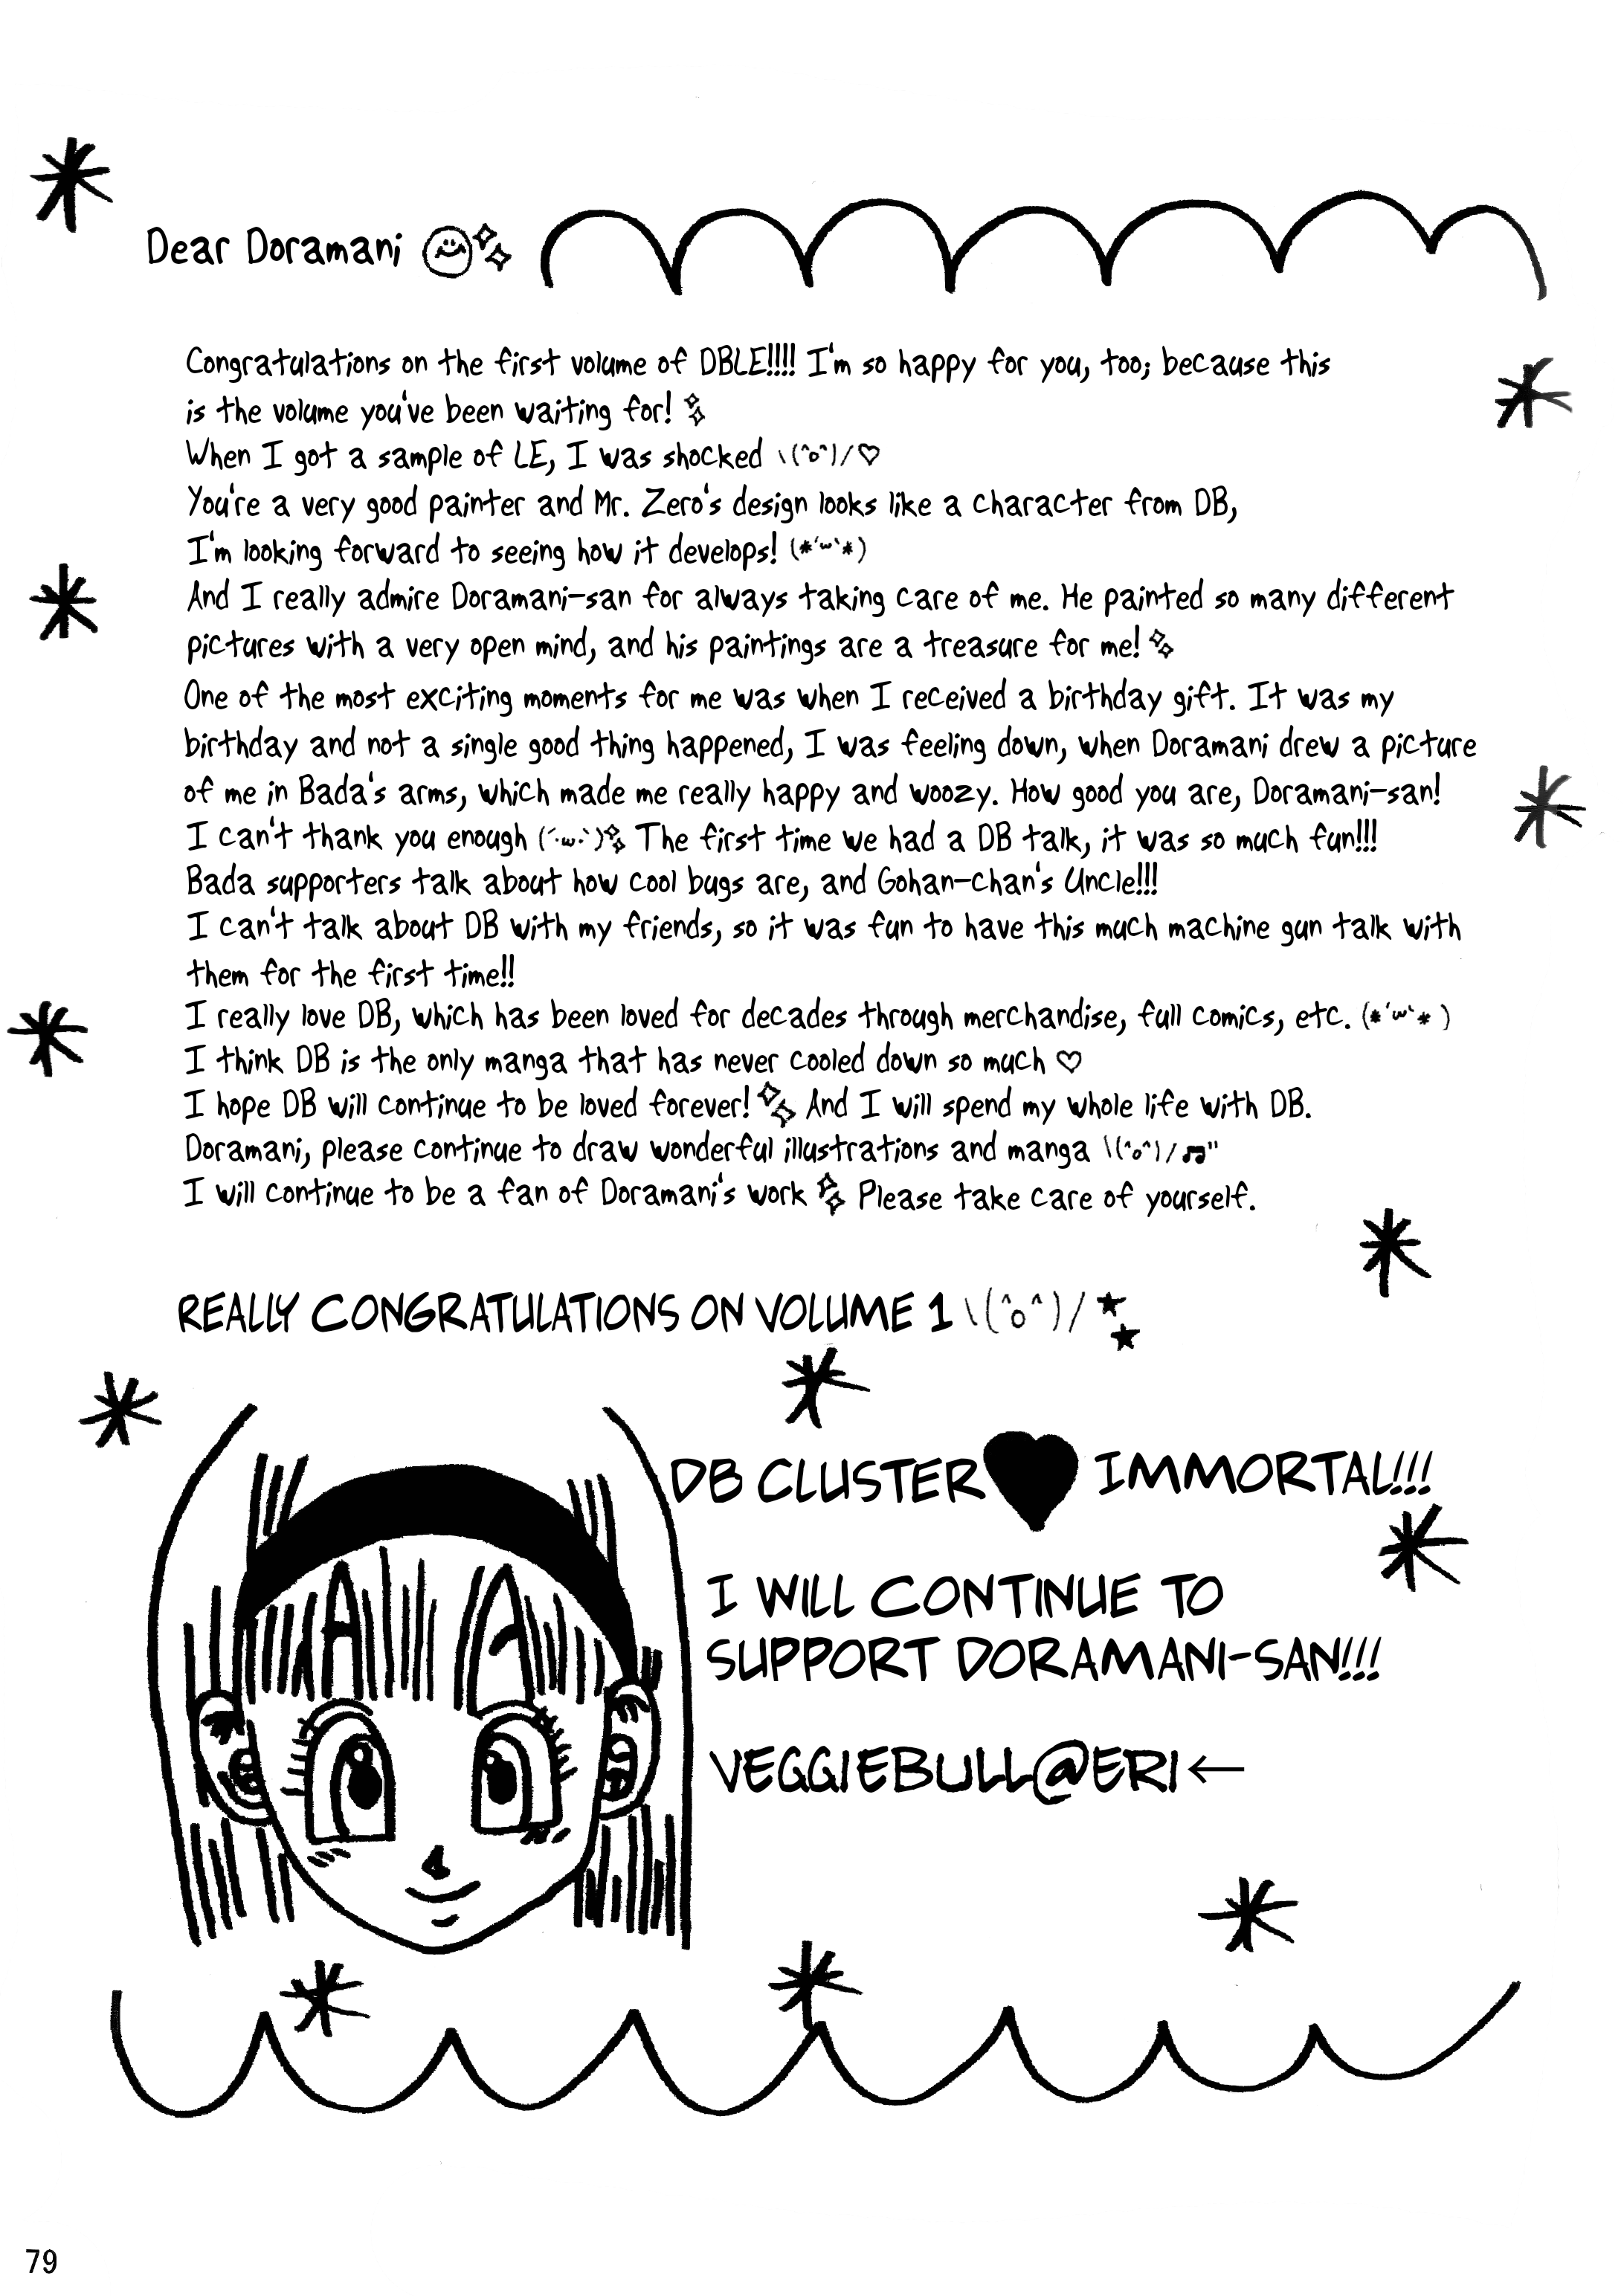 Dear Doramani
Congratulations on the first volume of DBLE!!!! I'm so happy for you, too; because this
is the volume you've been waiting for!
When I got a sample of LE, I was shocked \(^o^)/♡
You're a very good painter and Mr. Zero's design looks like a character from DB,
I'm looking forward to seeing how it develops! (*´ω`*)
And I really admire Doramani-san for always taking care of me. He painted so many different
pictures with a very open mind, and his paintings are a treasure for me!
One of the most exciting moments for me was when I received a birthday gift. It was my
birthday and not a single good thing happened, I was feeling down, when Doramani drew a picture
of me in Bada's arms, which made me really happy and woozy. How good you are, Doramani-san!
I can't thank you enough (´·ω·`) The first time we had a DB talk, it was so much fun!!!
Bada supporters talk about how cool bugs are, and Gohan-chan's Uncle!!!
I can't talk about DB with my friends, so it was fun to have this much machine gun talk with
them for the first time!!
I really love DB, which has been loved for decades through merchandise, full comics, etc. (*´ω`* )
I think DB is the only manga that has never cooled down so much ♡
I hope DB will continue to be loved forever! And I will spend my whole life with DB.
Doramani, please continue to draw wonderful illustrations and manga \(^o^)/♫"
I will continue to be a fan of Doramani's work Please take care of yourself.
REALLY CONGRATULATIONS ON VOLUME 1 \(^o^)/ ★★
DB CLUSTER ♥ IMMORTAL!!!
I WILL CONTINUE TO
SUPPORT DORAMANI-SAN!!!
VEGGIEBULL@ERI ←
79